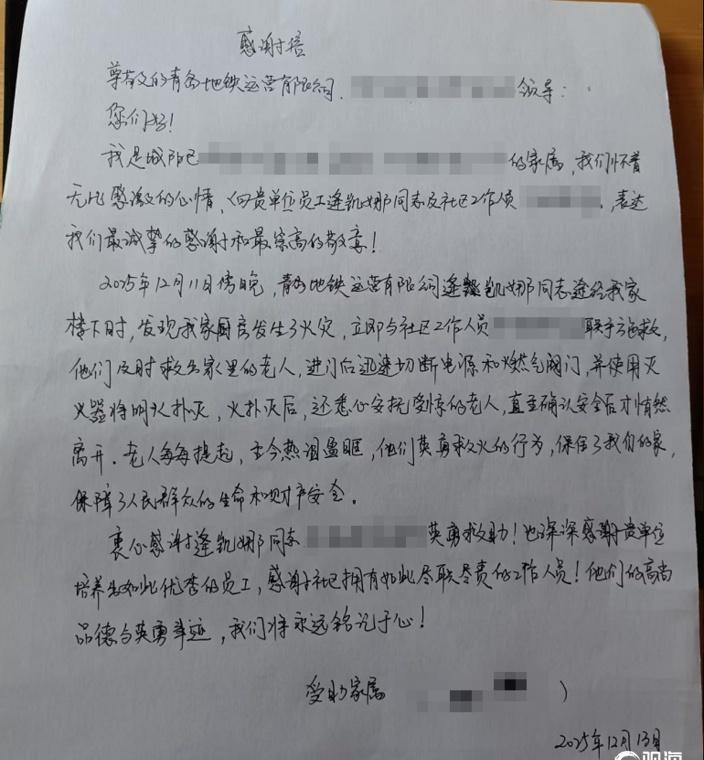 感谢信
尊敬的青岛地铁运营有限公司、领导：
您们好！
我是城阳区的家属，我们怀着
无比感激的心情，向贵单位员工逄凯娜同志及社区工作人员，表达
我们最诚挚的感谢和最崇高的敬意！
2025年12月11日傍晚，青岛地铁运营有限公司逄凯娜同志途经我家
楼下时，发现我家厨房发生了火灾，立即与社区工作人员联手施救，
他们及时救出家里的老人，进门后迅速切断电源和燃气阀门，并使用灭
火器将明火扑灭，火扑灭后，还悉心安抚受惊的老人，直至确认安全后才悄然
离开。老人每每提起，至今热泪盈眶，他们英勇救火的行为，保住了我们的家，
保障了人民群众的生命和财产安全。
衷心感谢逄凯娜同志英勇救助！也深深感谢贵单位
培养出如此优秀的员工，感谢社区拥有如此尽职尽责的工作人员！他们的高尚
品德与英勇事迹，我们将永远铭记于心！
受助家属
2025年12月13日
观海